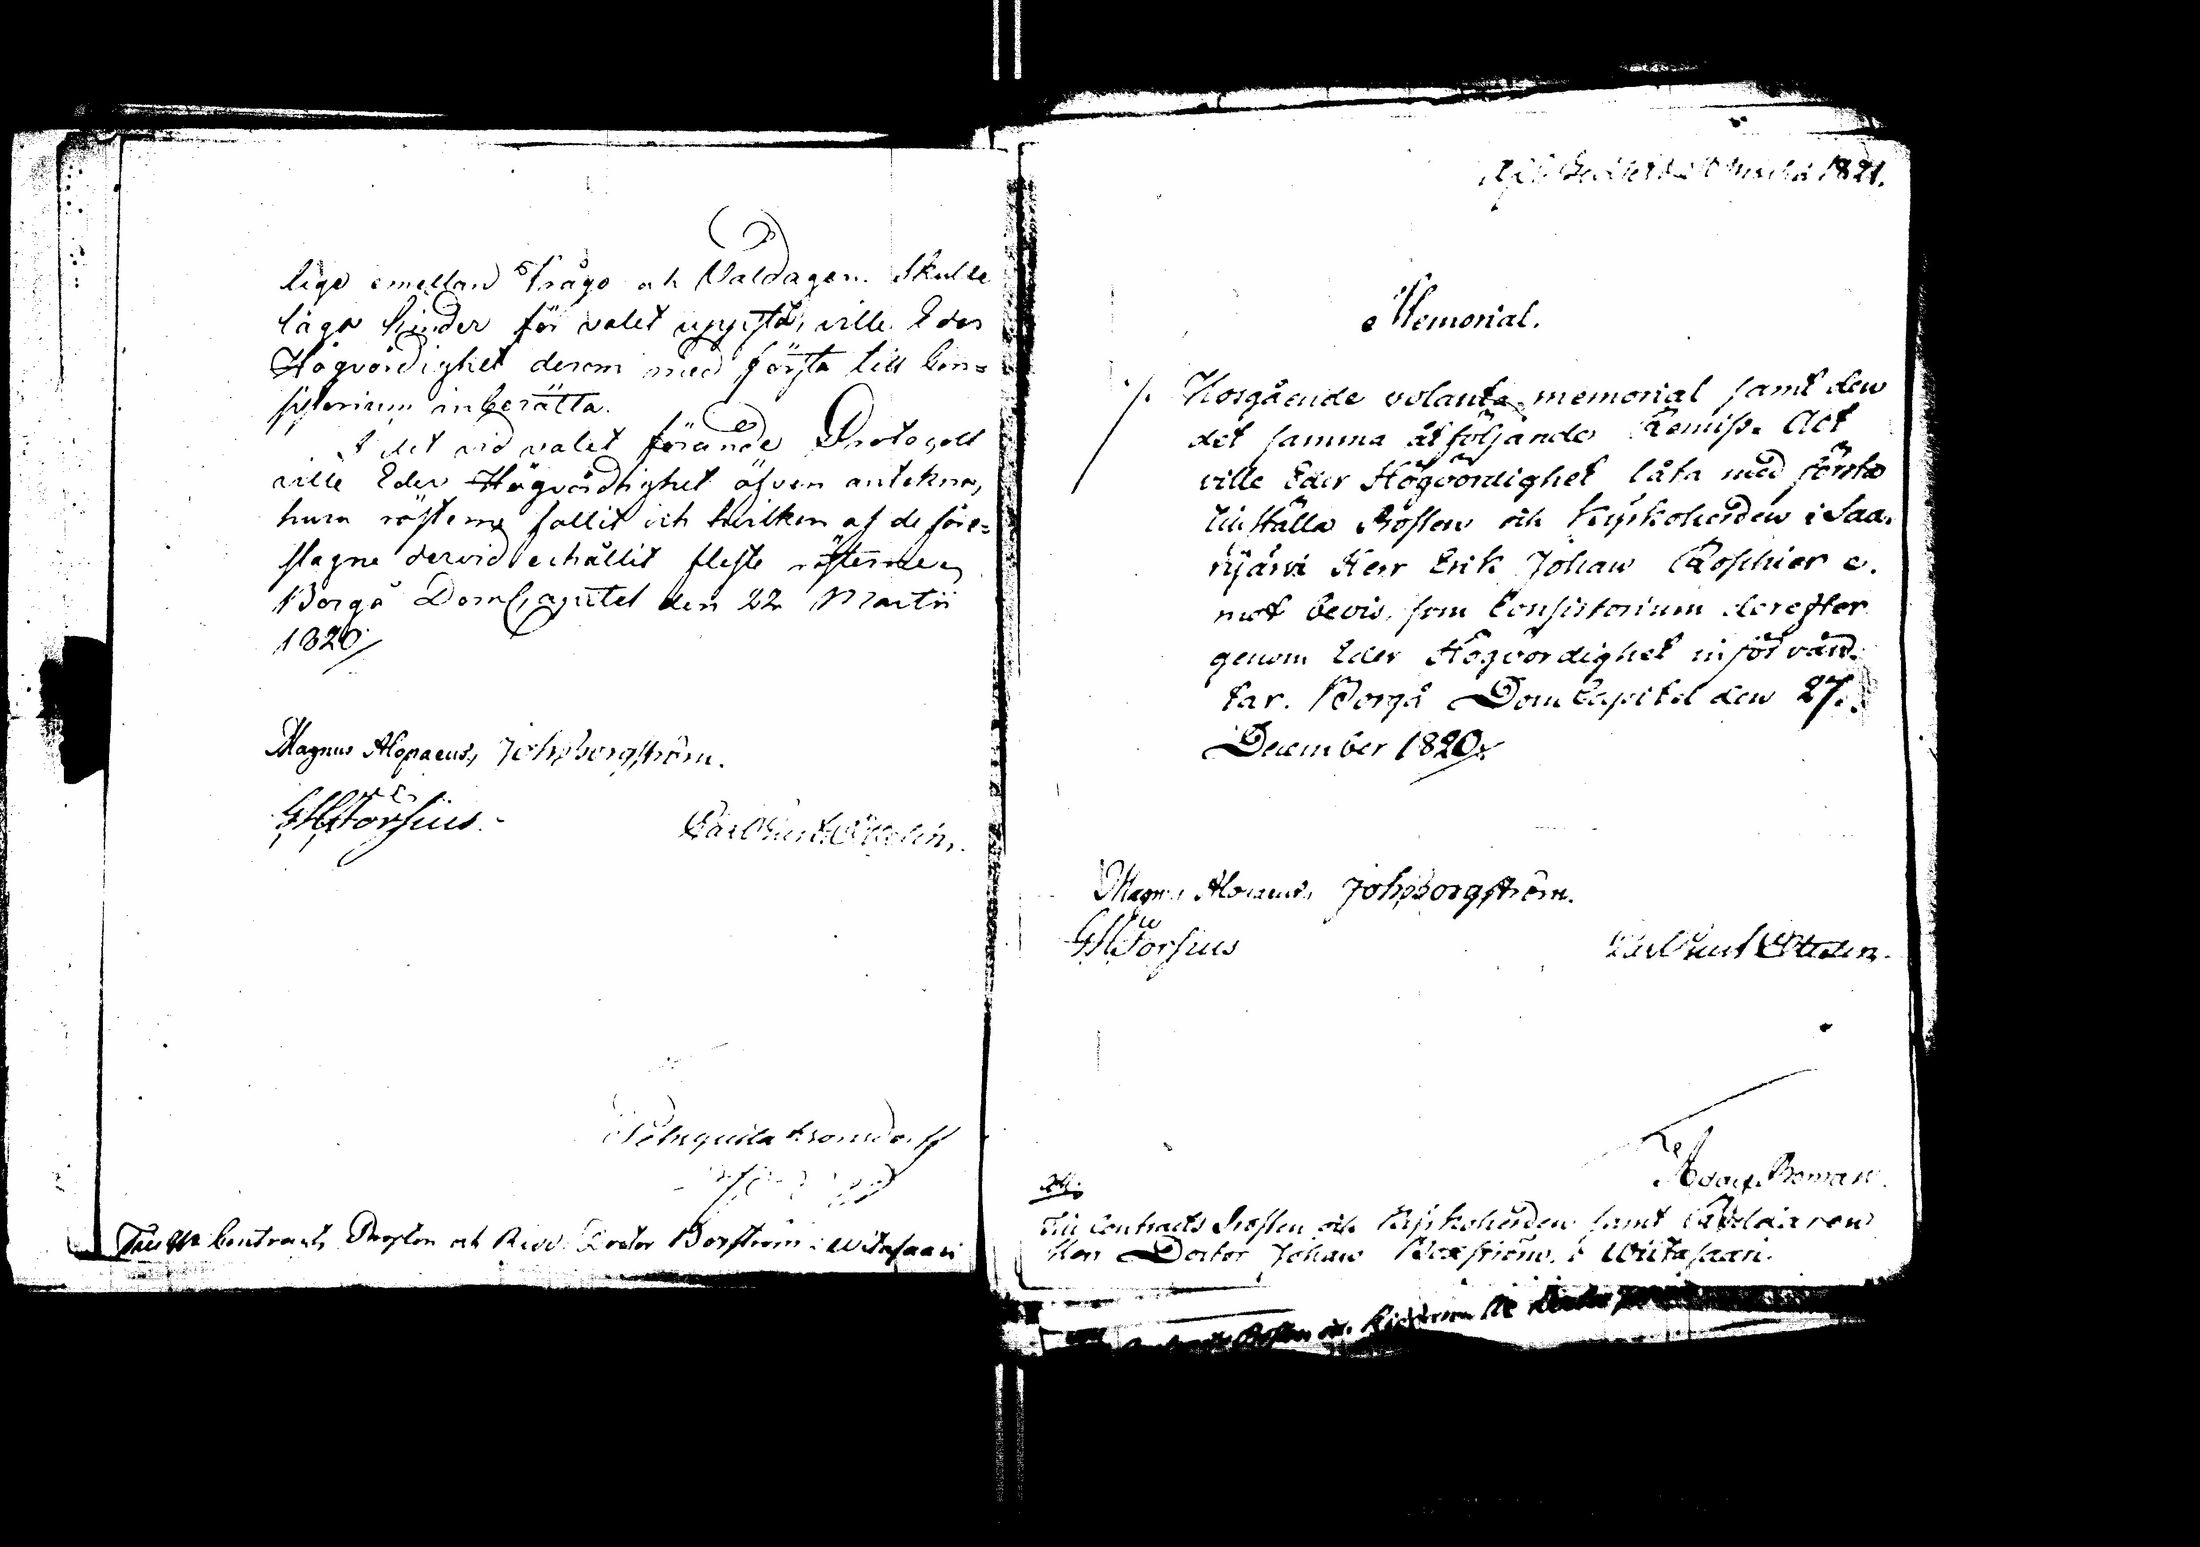 lige emellan Fråge och Valdagen. Skulle
laga hinder för valet uppstå, ville Eder
Högvördighet derom med första till Con=
sistorium inberätta.
I det vid valet förande Protocoll
ville Eder Högvördighet äfven antekna,
huru rösterne fallit och hvilken af de före=
slagne dervid erhållit fleste rösterne,
Borgå DomCapitel den 22 Martii
1820
Magnus Alopaeus, Joh. Borgström.
GMTörsius.
Carl Gust. Ottelin.
Till Contracts Prosten och Doctor Boxström i Witasaari
1821.
Memorial.
Horgående volanta memorial samt den
det samma åtföljande Remiss Act
ville Eder Högvördighet låta med första
tillställa Prosten och Kyrkoherden i Saa=
rijärvi Herr Erik Johan Roschier
mot bevis, som Consistorium derefter
genom Eder Högvördighet införvän=
tar. Borgå DomCapitel den 27.
December 1820.
Magnus Alopaeus, Joh. Borgström.
GMTörsius
Carl Gust Ottelin.
Adolf Boman.
Till Contracts Prosten och Kyrkoherden samt Riddaren
Herr Doctor Johan Boxström i Wiitasaari.
Prosten och